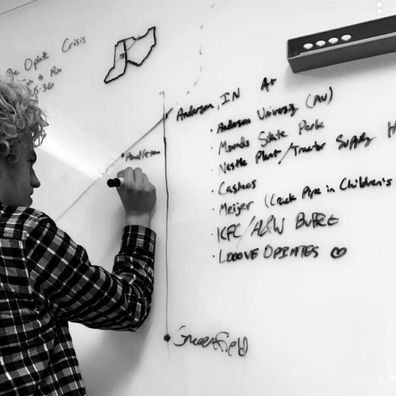 Opiate Crisis
Anderson, IN
• Anderson University (AU)
• Mounds State Park
• Nestle Plant/Tractor Supply
• Casheos
• Meijer (Crack Pipe in Children's
• KFC/A&W BUFFET
• LOOOVE OPIATES ♡
• Pendleton
Greenfield